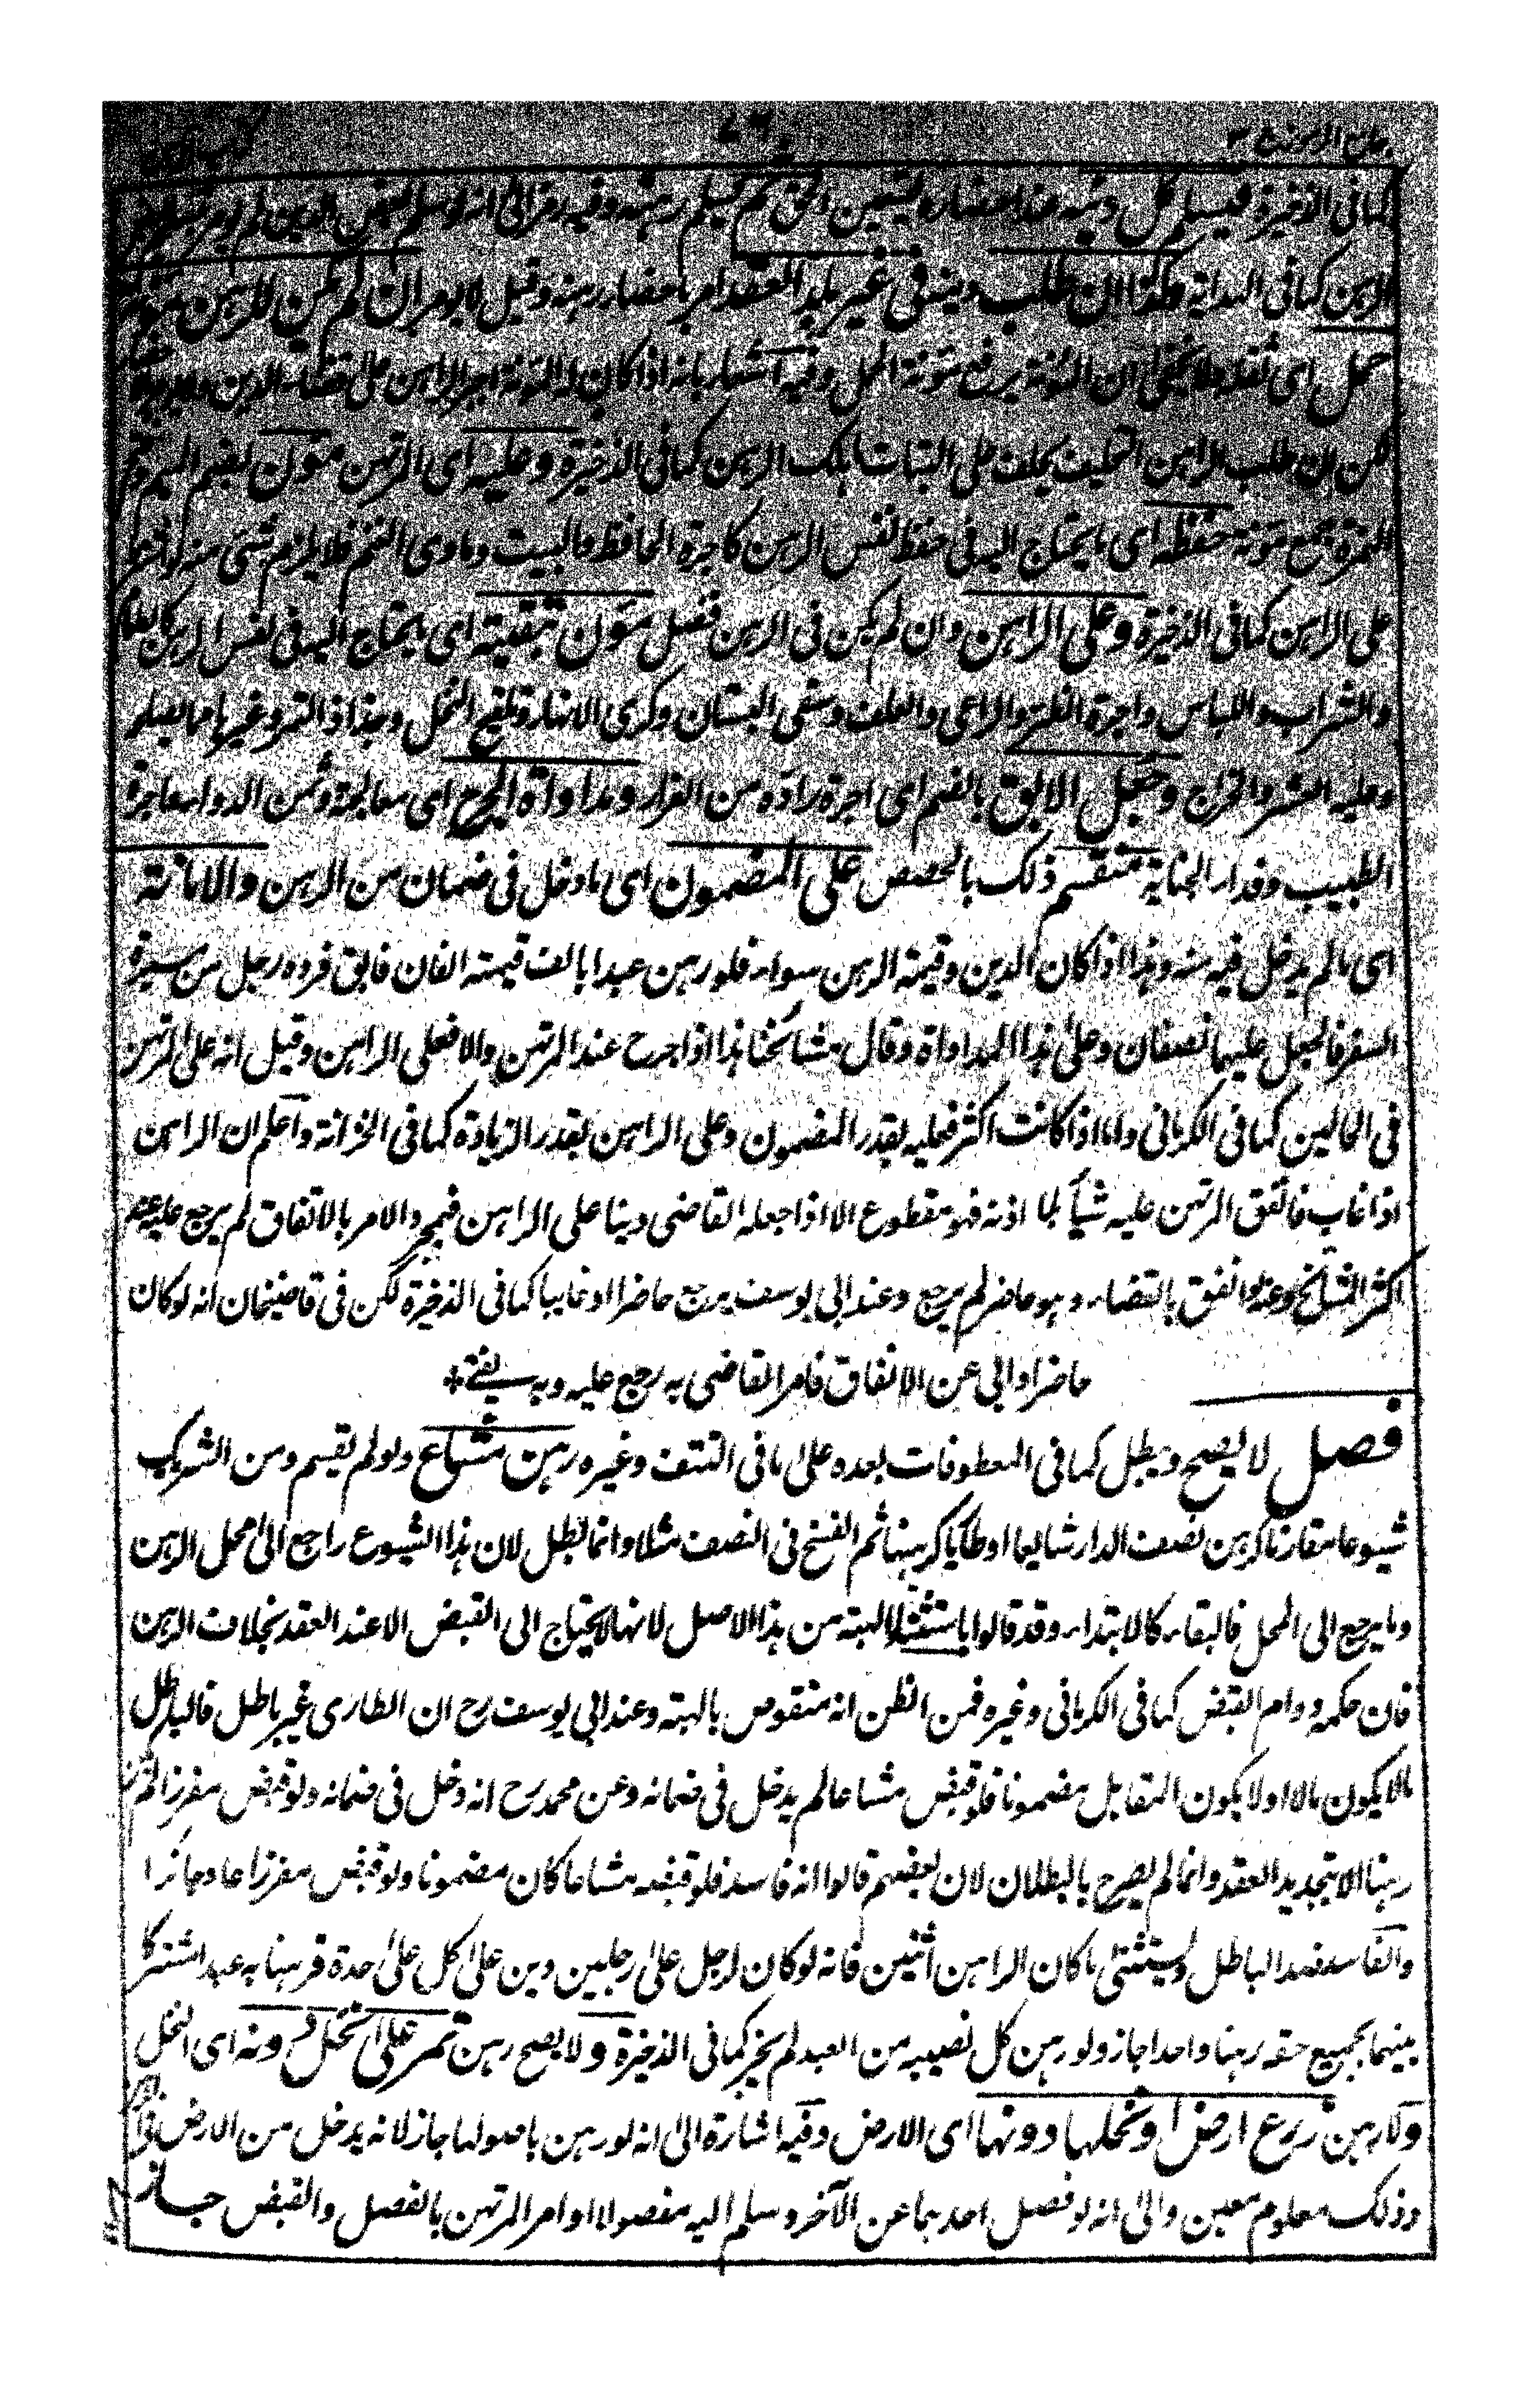 جامع الرموز ج ٣
كما فى الذخيرة فيسلم كل دينه بعد احضاره ليتعين الحق ثم يسلم رهنه وفيه رمز الى انه لو سلم بعض الدين لم يؤمر بتسليم
الرهن كما فى الهداية وكذا ان طلب دينه فى غير بلد العقد امر باحضار رهنه وقيل لا يؤمر ان لم يكن للرهن مؤنة
حمل اى ثقله ولا يخفى ان المؤنة يرفع مؤنة الحمل وفيه اشعار بانه اذا كان له المؤنة اجبر الراهن على قضاء الدين
لكن ان طلب الراهن التحليف يحلف على البتات ما هلك الرهن كما فى الذخيرة وعليه اى المرتهن مؤن بضم الميم وفتح
الهمزة جمع مؤنة حفظه اى ما يحتاج اليه فى حفظ نفس الرهن كاجرة الحافظ والبيت وماوى الغنم فلا يلزم شئ منه لو شرط
على الراهن كما فى الذخيرة وعلى الراهن وان لم يكن فى الرهن فضل مؤن تبقيته اى ما يحتاج اليه فى نفس الرهن كالطعام
والشراب واللباس واجرة الظئر والراعى والعلف وسقى البستان وكرى الانهار وتلقيح النخل وجذاذ التمر وغيرها مما يصلحه
وعليه العشر والخراج وجعل الابق بالضم اى اجرة رادّه من الفرار ومداواة الجرح اى معالجة وثمن الدواء واجرة
الطبيب وفداء الجناية منقسم ذلك بالحصص على المضمون اى ما دخل فى ضمان من الرهن والامانة
اى ما لم يدخل فيه منه وهذا اذا كان الدين وقيمة الرهن سواء فلو رهن عبدا بالف قيمته الفان فابق فرده رجل من مسيرة
السفر فالجعل عليهما نصفان وعلى هذا المداواة وقال مشائخنا هذا اذا جرح عند المرتهن والا فعلى الراهن وقيل انه على المرتهن
فى الحالين كما فى الكرمانى واما اذا كانت اكثر فعليه بقدر المضمون وعلى الراهن بقدر الزيادة كما فى الخزانة واعلم ان الراهن
اذا غاب فانفق المرتهن عليه شيأ بلا اذنه فهو مقطوع الا اذا جعله القاضى دينا على الراهن فبمجرد الامر بالانفاق لم يرجع عليه عند
اكثر المشائخ وعنه لو انفق بالقضاء وهو حاضر لم يرجع وعند ابى يوسف يرجع حاضرا او غايبا كما فى الذخيرة لكن فى قاضيخان انه لو كان
حاضرا وابى عن الانفاق فامر القاضى به رجع عليه وبه يفتى *
فصل لا يصح ويبطل كما فى المعطوفات بعده على ما فى النتف وغيره رهن مشاع ولو لم يقسم ومن الشريك
شيوعا مقارنا كرهن نصف الدار شايعا او طاريا كرهنها ثم الفسخ فى النصف مثلا وانما بطل لان هذا الشيوع راجع الى محل الرهن
وما يرجع الى المحل فالبقاء كالابتداء وقد قالوا باستثناء الهبة من هذا الاصل لانها لا يحتاج الى القبض الا عند العقد بخلاف الرهن
فان حكمه دوام القبض كما فى الكرمانى وغيره فمن الظن انه منقوص بالهبة وعند ابى يوسف رح ان الطارى غير باطل فالباطل
ما لا يكون مالا او لا يكون المقابل مضمونا فلو قبض مشاعا لم يدخل فى ضمانه وعن محمد رح انه دخل فى ضمانه ولو قبض مفرزا لم يكن
رهنا الا بتجديد العقد وانما لم يصرح بالبطلان لان بعضهم قالوا انه فاسد فلو قبضه مشاعا كان مضمونا ولو قبض مفرزا عاد جائزا
والفاسد ضد الباطل ويستثنى ما كان الراهن اثنين فانه لو كان لرجل على رجلين دين على كل على حدة فرهنا به عبدا مشتركا
بينهما بجميع حقه رهنا واحدا جاز ولو رهن كل نصيبه من العبد لم يجز كما فى الذخيرة ولا يصح رهن ثمر على نخل دونه اى النخل
ولا رهن زرع ارض او نخلها دونها اى الارض وفيه اشارة الى انه لو رهن باصولها جاز لانه يدخل من الارض
وذلك معلوم معين والى انه لو فصل احدهما عن الآخر وسلم اليه مفصولا او امر المرتهن بالفصل والقبض جاز